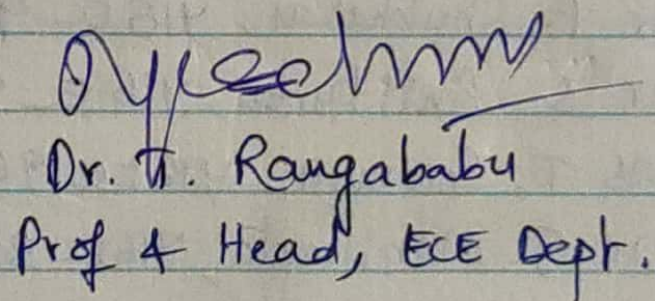 Dr. T. Rangababu
Prof & Head, ECE Dept.